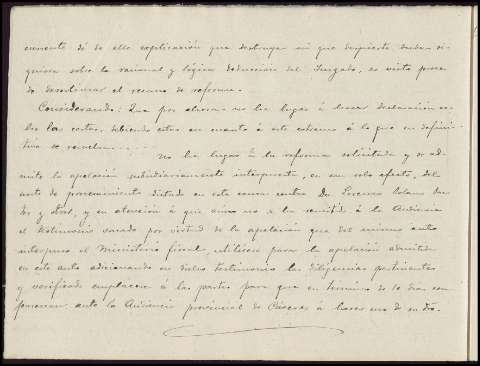 cuencia dé de ello explicación que destruya ni que despierte dudas si-
quiera sobre la racional y lógica deducción del Juzgado, es visto proce-
de desestimar el recurso de reforma.
Considerando: Que por ahora no ha lugar á hacer declaración so-
bre las costas, debiendo estar en cuanto á este extremo á lo que en defini-
tiva se resuelva.
No ha lugar á la reforma solicitada y se ad-
mite la apelación subsidiariamente interpuesta, en un solo efecto, del
auto de procesamiento dictado en esta causa contra Dn Lorenzo
y otros, y en atención á que aun no se ha remitido á la Audiencia
el testimonio sacado por virtud de la apelación que del mismo auto
interpuso el Ministerio fiscal, utilícese para la apelación admitida
en este auto adicionando en dicho testimonio las diligencias pertinentes
y verificado emplácese á las partes para que en término de 10 días com-
parezcan ante la Audiencia provincial de Cáceres á hacer uso de su dro.